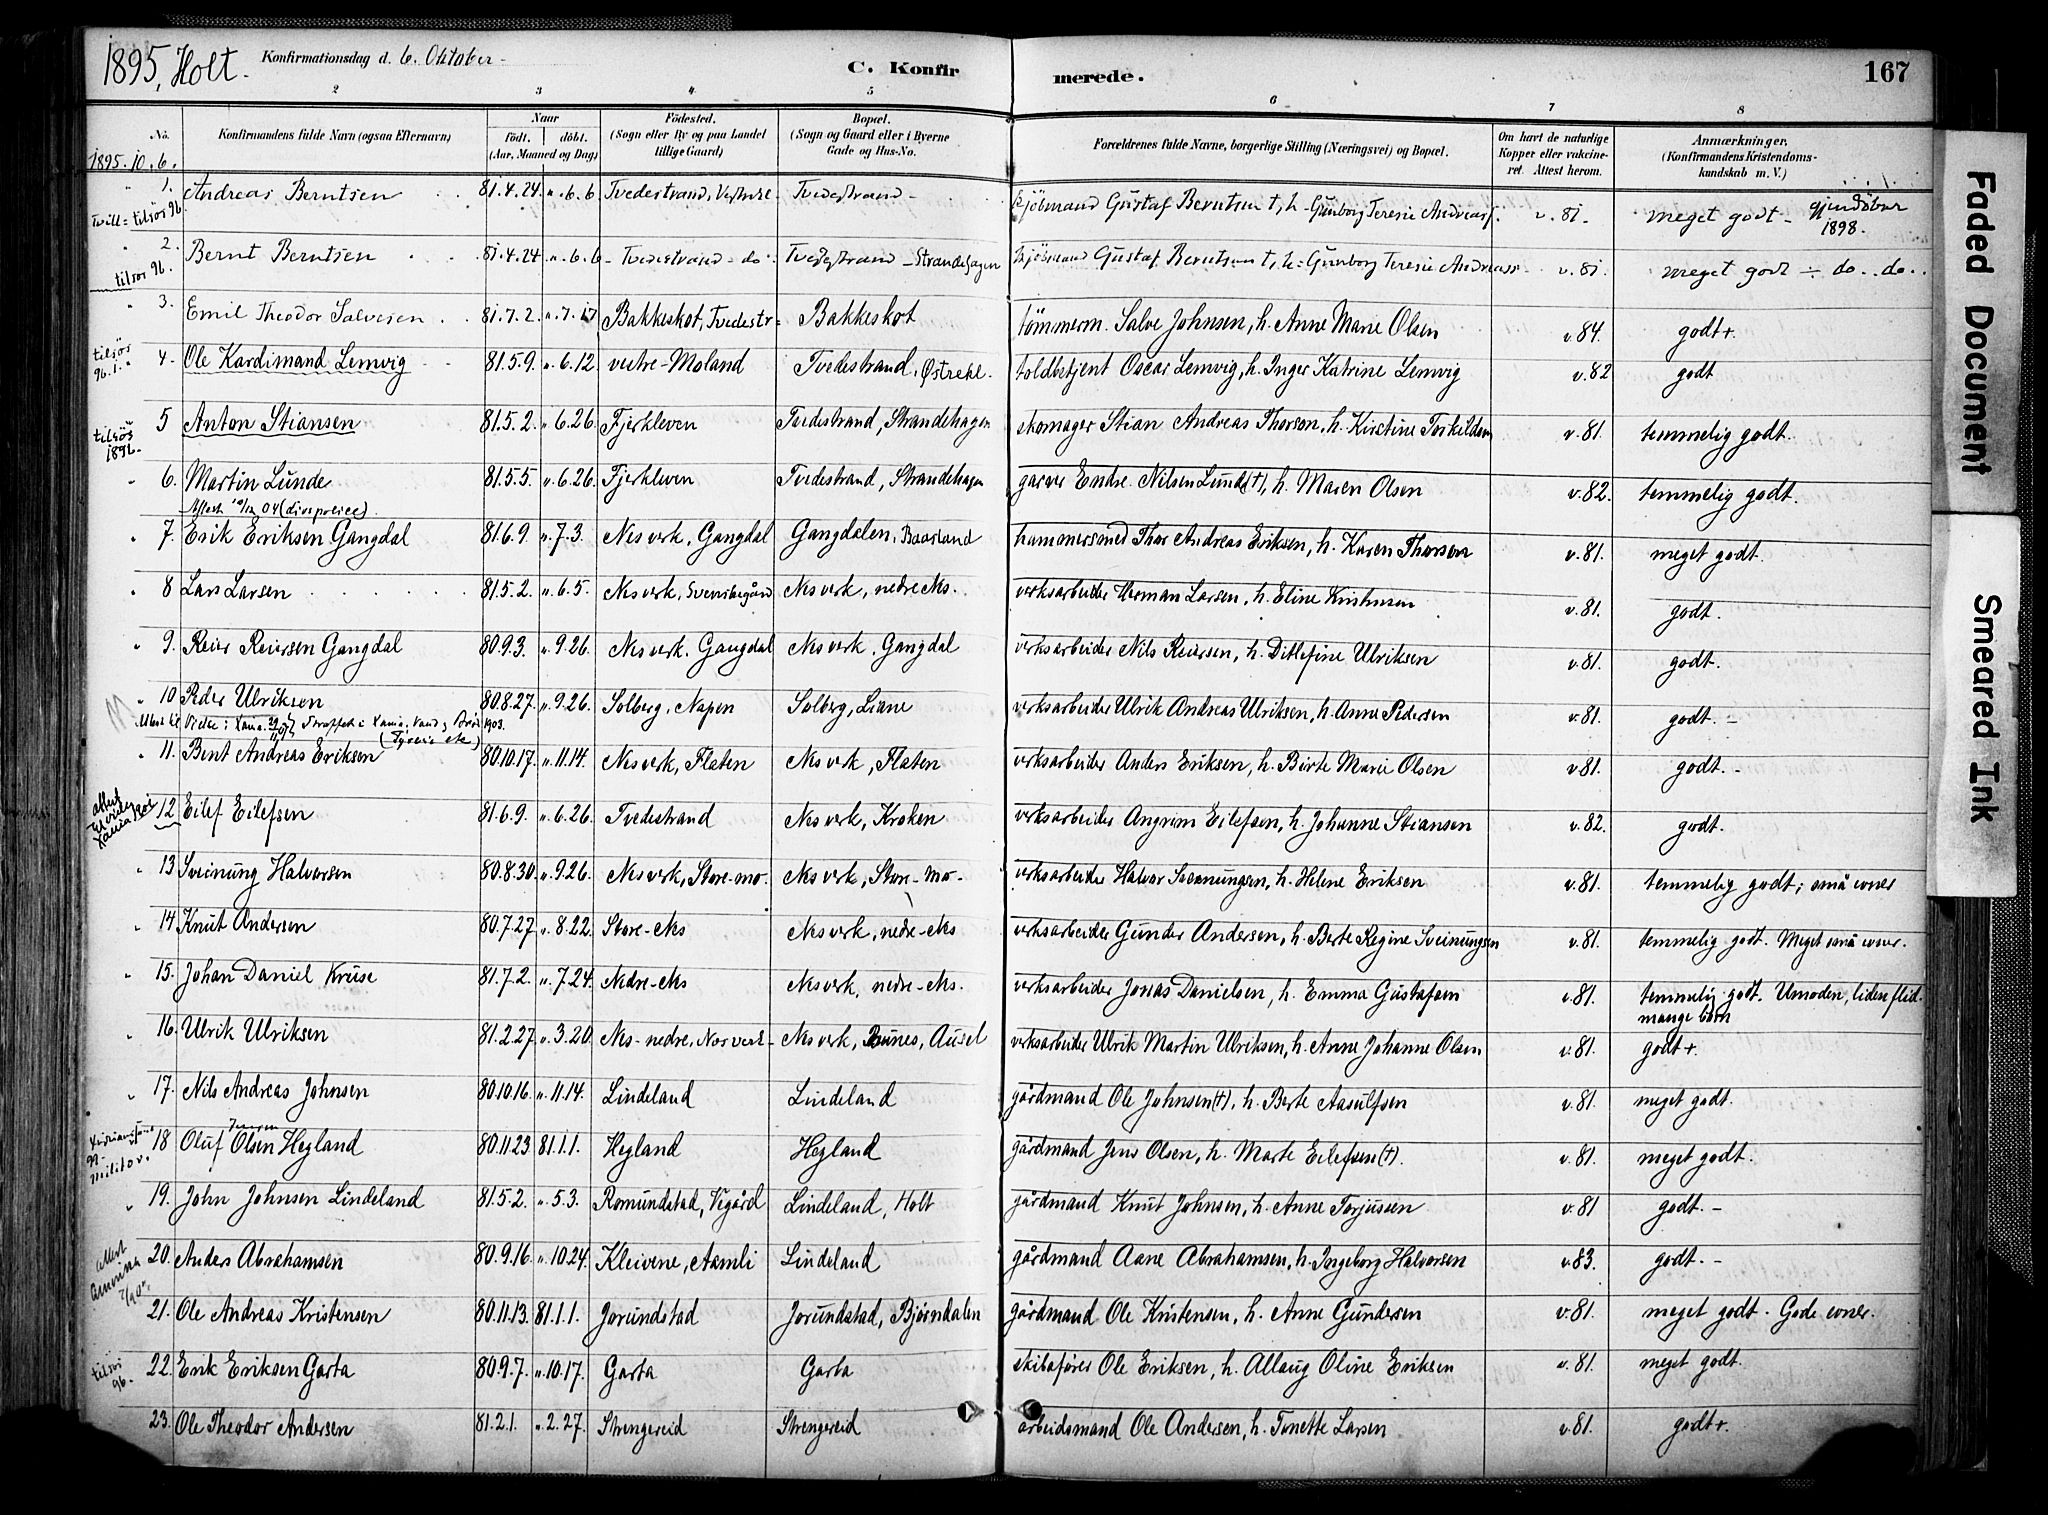 1895, Holt. Konfirmationsdag d. 6. Oktober C. Konfirmerede. 167
2 3 4 5 6 7 8
No. Konfirmandens fulde Navn (ogsaa Efternavn) Naar født. døbt. (Aar, Maaned og Dag) Fødested. (Sogn eller By og paa Landet tillige Gaard) Bopæl. (Sogn og Gaard eller i Byerne Gade og Hus-No. Forældrenes fulde Navne, borgerlige Stilling (Næringsvei) og Bopæl. Om havt de naturlige Kopper eller vakcineret. Attest herom. Anmærkninger. (Konfirmandens Kristendomskundskab m. V.)
1895. 10. 6.
1. Andreas Berntsen 81.4.24 „.6.6 Tvedestrand, Tvedestrand Gustaf Berntsen †, h. Gunborg Teresie v.81. meget godt 1898.
tilsøs 96
2. Bernt Berntsen 81.4.24 „.6.6 Tvedestrand do Tvedestrand Strandehagen Gustaf Berntsen †, h. Gunborg Teresie v.81. meget godt - do. do.
tilsøs 96.
3. Emil Theodor Salvesen 81.7.2. „.7.17 Bakkeskot, Tvedestr. Bakkeskot tømmerm. Salve Johnsen, h. Anne Marie Olsen v.84. godt+
tilsøs 96.
4. Ole Kardimand Lemvig 81.5.9. „.6.12 vestre-Moland Tvedestrand, Østrekl. toldbetjent Oscar Lemvig, h. Inger Katrine Lemvig v.82 godt
tilsøs
5 Anton Stiansen 81.5.2. „.6.26. Fjerkleven Tvedestrand, Strandehagen skomager Stian Andreas Thorsen, h. Kirstine v.81. temmelig godt.
6. Martin Lunde 81.5.5. „.6.26. Fjerkleven Tvedestrand, Strandehagen garver Endre Nilsen Lunde (†), h. Maren Olsen v.82. temmelig godt.
7. Erik Eriksen Gangdal 81.6.9. „.7.3. Nesverk, Gangdal Gangdalen, Baarland hammersmed Thor Andreas Eriksen, h. Karen Thorsen v.81. meget godt.
8 Lars Larsen 81.5.2. „.6.5. Nesverk, Nesverk, nedre Nes. verksarbeider Herman Larsen, h. Eline v.81. godt.
9. Reier Reiersen Gangdal 80.9.3. „.9.26. Nesverk, Gangdal Nesverk, Gangdal verksarbeider Nils Reiersen, h. Ditlefine Ulriksen v.81. godt.
10 Peder Ulriksen 80.8.27. „.9.26. Solberg, Napen Solberg, Liane verksarbeider Ulrik Andreas Ulriksen, h. Anne Pedersen v.81. godt. -
11. Bent Andreas Eriksen 80.10.17. „.11.14. Nesverk, Flaten Nesverk, Flaten verksarbeider Anders Eriksen, h. Birte Marie Olsen v.81. godt. -
12 Eilef Eilefsen 81.6.9. „.6.26. Tvedestrand Nesverk, Kroken verksarbeider Angrim Eilefsen, h. Johanne Stiansen v.82. godt.
13 Sveinung Halvorsen 80.8.30. „.9.26. Nesverk, Store-mo. Nesverk, Store-Mo- verksarbeider Halvor Sveinungsen, h. Helene Eriksen v.81. temmelig godt; små evner
14 Knut Andersen 80.7.27. „.8.22. Store-Nes Nesverk, nedre-Nes verksarbeider Gunder Andersen, h. Berte Regine Sveinungsen v.81. temmelig godt. Meget små evner.
15. Johan Daniel Kruse 81.7.2. „.7.24. Nedre-Nes Nesverk, nedre-Nes. verksarbeider Jonas Danielsen, h. Emma Gustafsen v.81. temmelig godt. Umoden, liden flid.
mange børn
16. Ulrik Ulriksen 81.2.27. „.3.20. Nes-nedre, Nesverk, Bunes, Ausel verksarbeider Ulrik Martin Ulriksen, h. Anne Johanne Olsen v.81. godt+.
17. Nils Andreas Johnsen 80.10.16. „.11.14. Lindeland Lindeland gårdmand Ole Johnsen (†), h. Berte Aasulfsen v.81. meget godt.
18 Oluf Olsen Hegland 80.11.23 81.1.1. Hegland Hegland gårdmand Jens Olsen, h. Marte Eilefsen (†). v.81. meget godt.
19. John Johnsen Lindeland 81.5.2. „.5.3. Romundstad, Vigård Lindeland, Holt gårdmand Knut Johnsen, h. Anne Torjusen v.81 godt. -
20. Anders Abrahamsen 80.9.16. „.10.24. Kleivene, Aamli Lindeland gårdmand Aane Abrahamsen, h. Ingeborg Halvorsen v.83. godt. -
21. Ole Andreas Kristensen 80.11.13. 81.1.1. Jorundstad Jorundstad, Bjørndalen gårdmand Ole Kristensen, h. Anne Gundersen v.81. meget godt. Gode evner.
tilsøs 96.
22. Erik Eriksen Garta 80.9.7. „.10.17. Garta Garta skibsfører Ole Eriksen, h. Allaug Oline Eriksen v.81. meget godt.
23. Ole Theodor Andersen 81.2.1. „.2.27. Strengereid Strengereid arbeidsmand Ole Andersen, h. Tonette Larsen v.81. godt+.
Faded Document
Smeared Ink